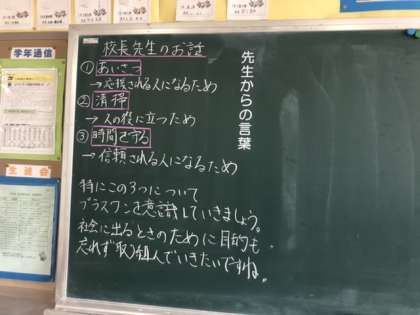 校長先生のお話
① あいさつ
→応援される人になるため
② 清掃
→人の役に立つため
③ 時間を守る
→信頼される人になるため
特にこの3つについて
プラスワンを意識していきましょう。
社会に出るときのために目的も
忘れず取り組んでいきたいですね。
先生からの言葉
学年通信
生徒会